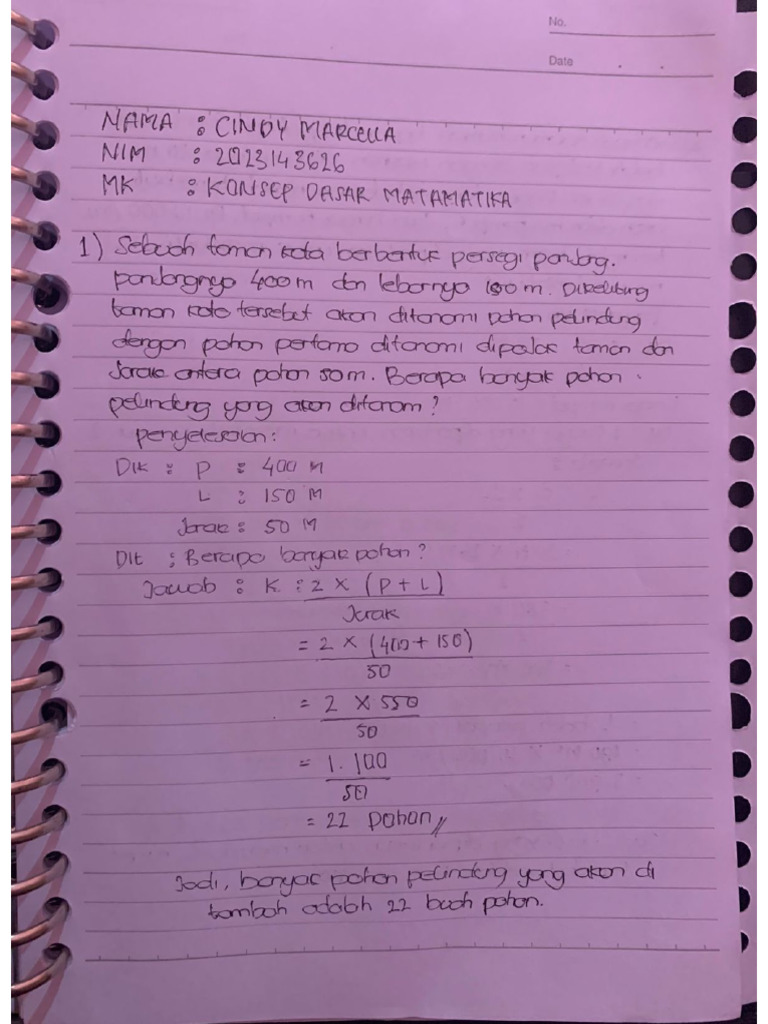 No.
Date
NAMA : CINDY MARCELLA
NIM : 2023143626
MK : KONSEP DASAR MATAMATIKA
1) Sebuah taman kota berbentuk persegi panjang.
panjangnya 400 m dan lebarnya 150 m. Dikeliling
taman kota tersebut akan ditanami pohon pelindung
dengan pohon pertama ditanami dipojok taman dan
Jarak antara pohon 50 m. Berapa banyak pohon
pelindung yang akan ditanam?
penyelesaian:
Dik : P : 400 M
L : 150 M
Jarak : 50 M
Dit : Berapa banyak pohon?
Jawab : K : 2 x (P + L)
Jarak
= 2 x (400 + 150)
50
= 2 x 550
50
= 1.100
50
= 22 Pohon //
Jadi, banyak pohon pelindung yang akan di
tambah adalah 22 buah pohon.